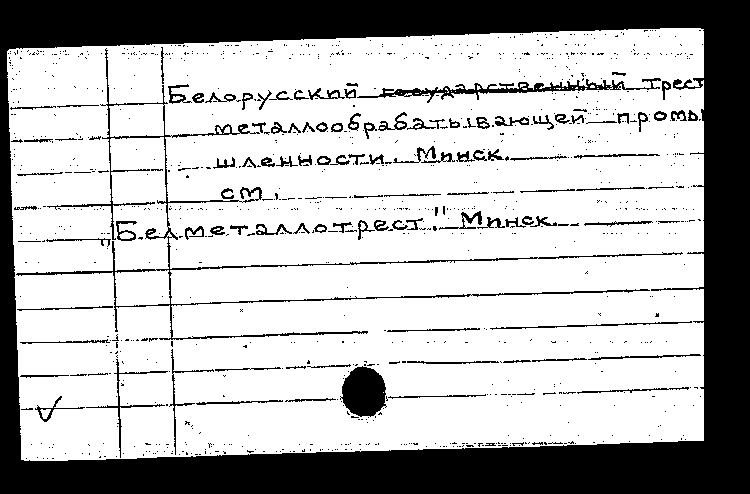 Белорусский государственный трест
металлообрабатывающей промы
шленности. Минск.
см.
"Белметаллотрест." Минск.